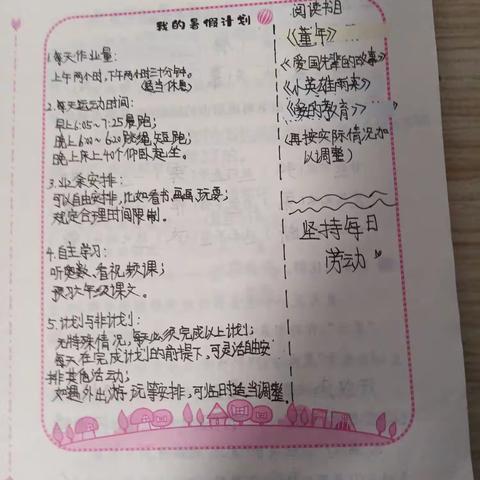 我的暑假计划
1.每天作业量:
上午两小时,下午两小时三十分钟。
(适当休息)
2.每天运动时间:
早上6:05~7:25晨跑;
晚上6:00~6:20跳绳,短跑;
晚上床上40个仰卧起坐。
3.业余安排:
可以自由安排,比如看书,画画,玩耍;
规定合理时间限制。
4.自主学习:
听奥数、看视频课;
预习六年级课文。
5.计划与非计划:
无特殊情况,每天必须完成以上计划;
每天在完成计划的前提下,可灵活自由安
排其他活动;
如遇外出游玩等安排,可临时适当调整。
阅读书目
《童年》
《爱国先辈的故事》
《小英雄雨来》
《爱的教育》
(再按实际情况加
以调整)
坚持每日
劳动